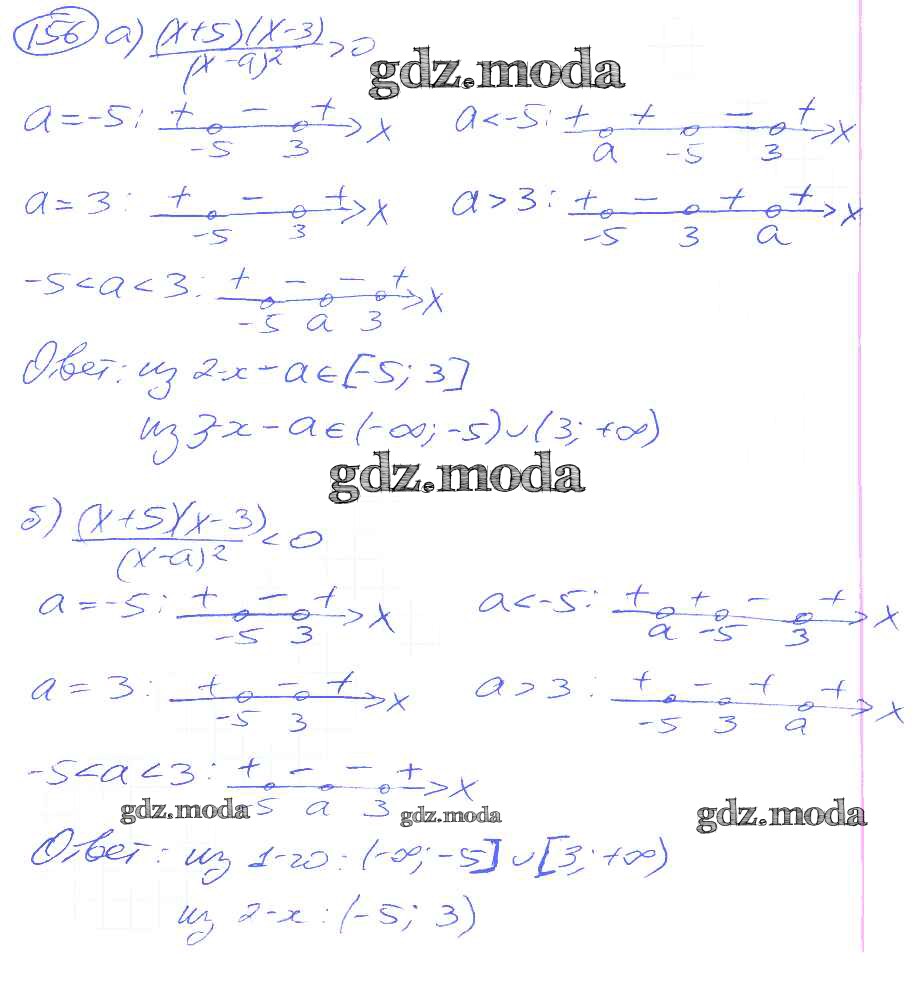 156 а) (x+5)(x-3)/(x-a)² > 0
gdz.moda
a = -5: + - + x -5 3 a < -5: + + - + x a -5 3
a = 3: + - + x -5 3 a > 3: + - + + x -5 3 a
-5 < a < 3: + - - + x -5 a 3
Ответ: из 2-х - a ∈ [-5; 3]
из 3-х - a ∈ (-∞; -5) ∪ (3; +∞)
gdz.moda
б) (x+5)(x-3)/(x-a)² < 0
a = -5: + - + x -5 3 a < -5: + + - + x a -5 3
a = 3: + - + x -5 3 a > 3: + - + + x -5 3 a
-5 < a < 3: + - - + x -5 a 3
gdz.moda gdz.moda gdz.moda
Ответ: из 1-го: (-∞; -5] ∪ [3; +∞)
из 2-х: (-5; 3)